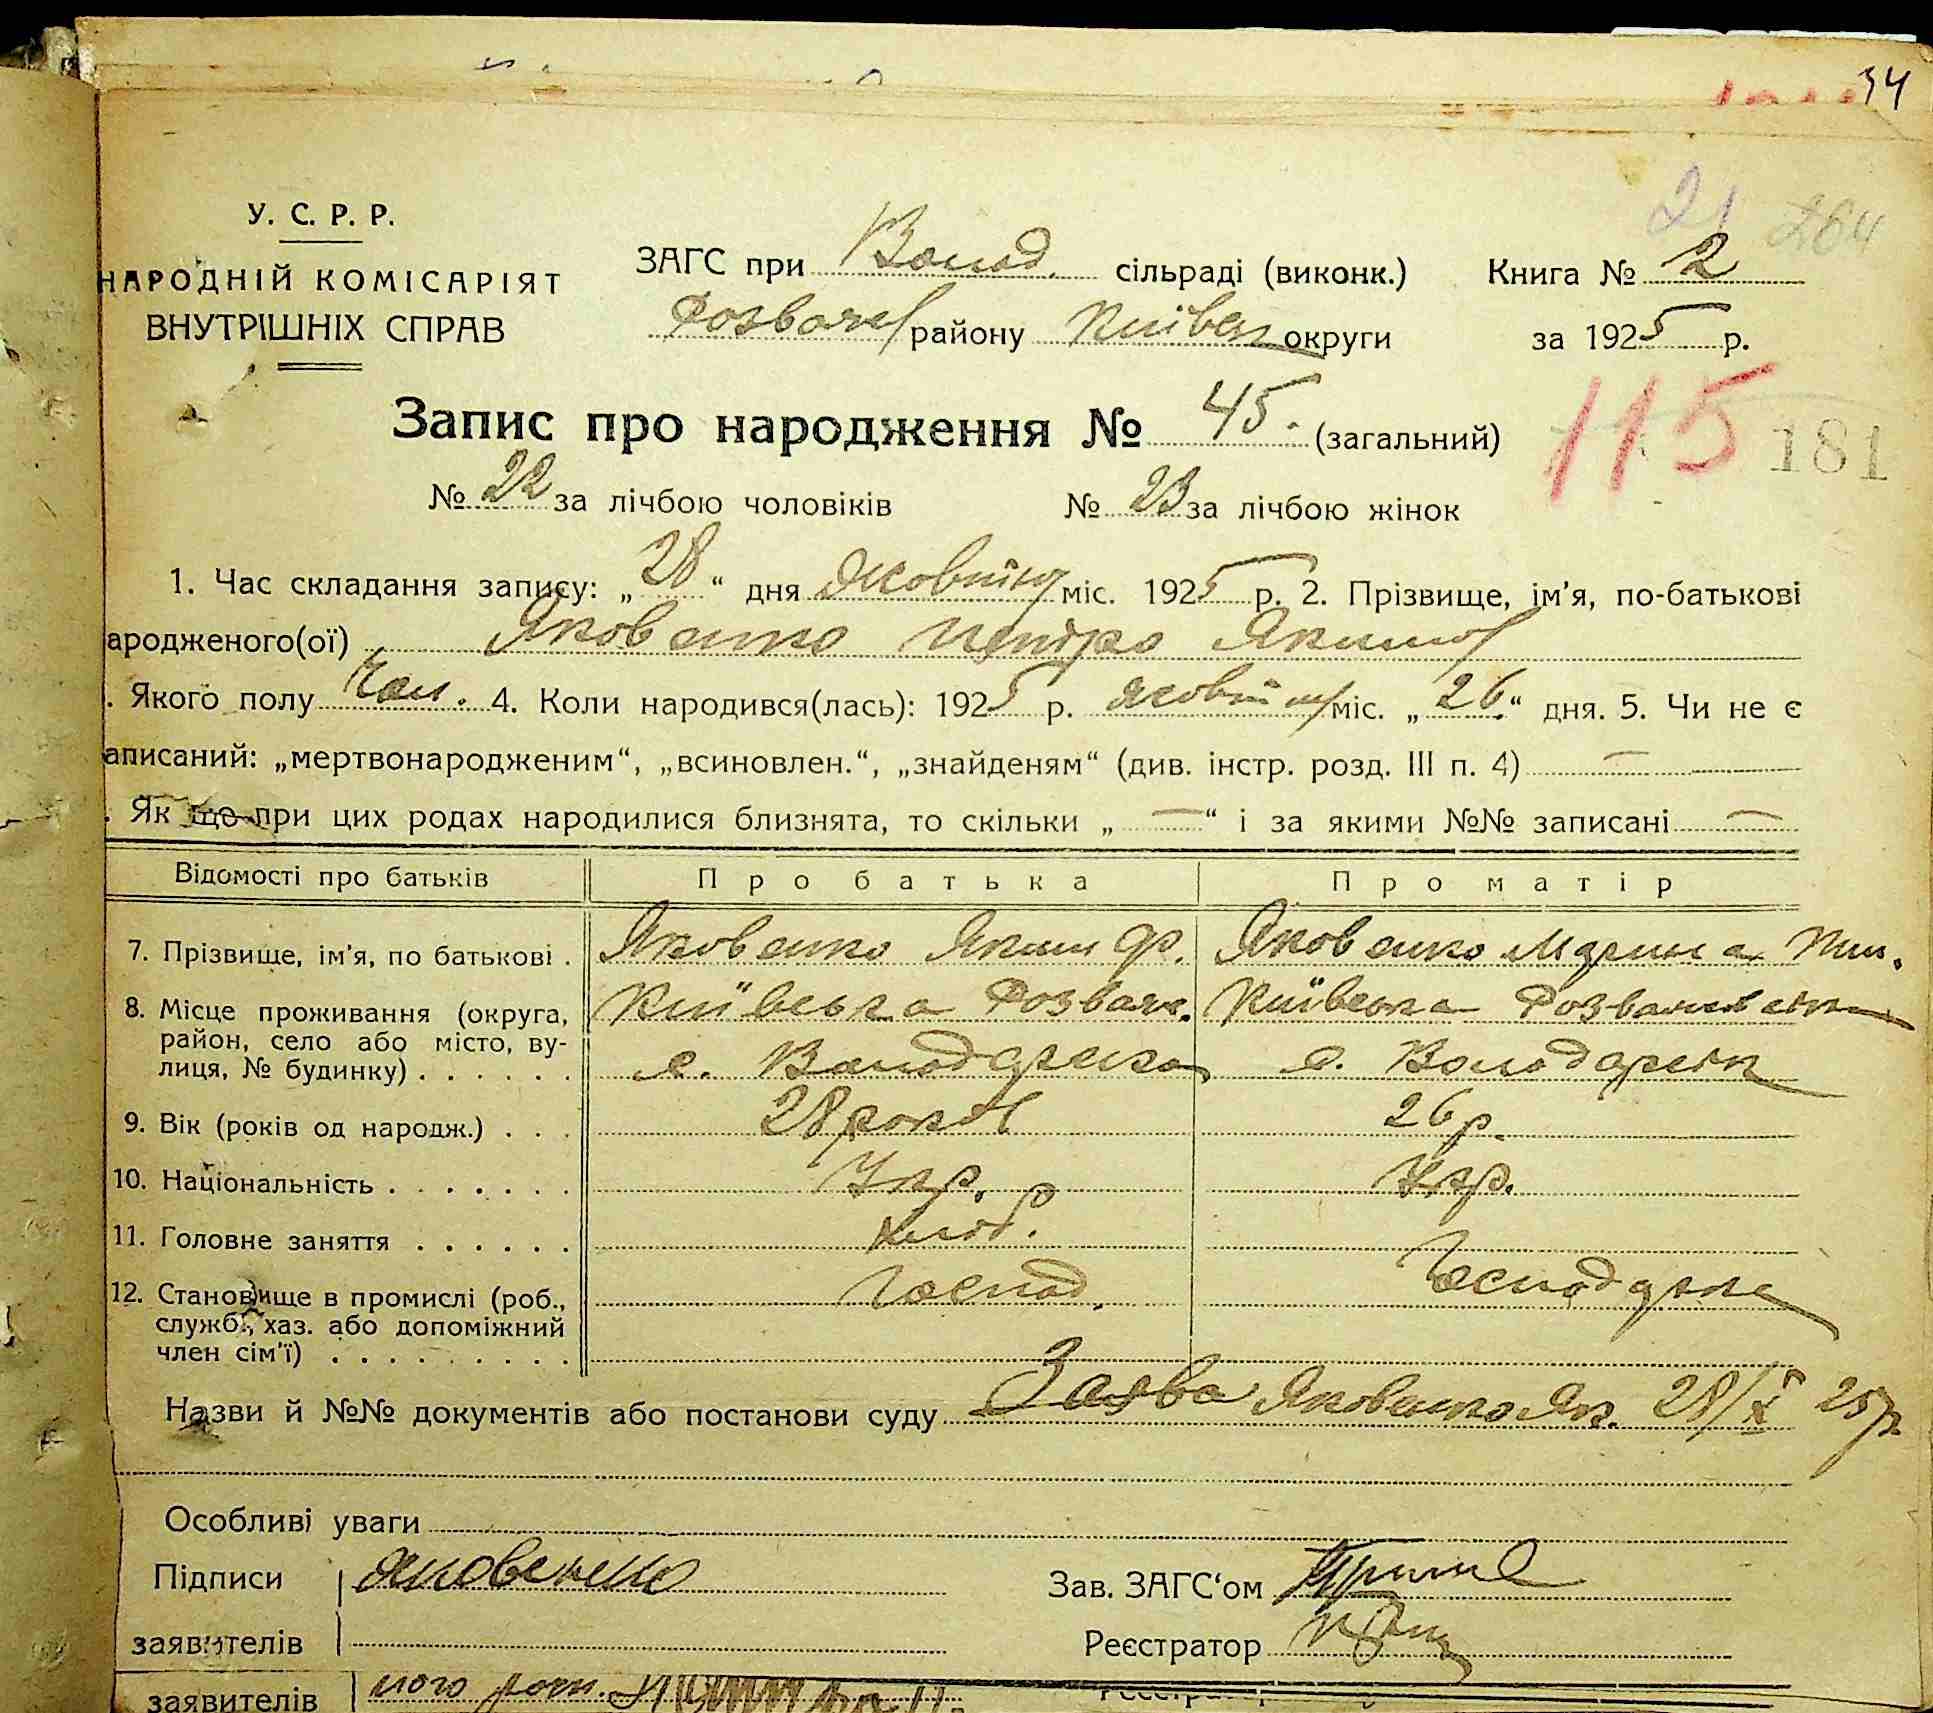 34
21 264
У. С. Р. Р.
НАРОДНІЙ КОМІСАРІЯТ
ВНУТРІШНІХ СПРАВ
ЗАГС при Волод. сільраді (виконк.) Книга № 2
Розваж району Київськ округи за 1925 р.
Запис про народження № 45. (загальний)
115 181
№ 22 за лічбою чоловіків № 23 за лічбою жінок
1. Час складання запису: „28“ дня Жовтня міс. 1925 р. 2. Прізвище, ім'я, по-батькові
ародженого(ої) Яковенко Петро Якимов
. Якого полу Чол. 4. Коли народився(лась): 1925 р. жовтня міс. „26.“ дня. 5. Чи не є
аписаний: „мертвонародженим“, „всиновлен.“, „знайденям“ (див. інстр. розд. III п. 4) —
. Як що при цих родах народилися близнята, то скільки „—“ і за якими №№ записані —
Відомості про батьків Про батька Про матір
7. Прізвище, ім'я, по батькові . Яковенко Яким Ф. Яковенко Марина
8. Місце проживання (округа, Київська Розваж. Київська Розважівськ
район, село або місто, ву-
лиця, № будинку) . . . . . . с. Володарка с. Володарськ
9. Вік (років од народж.) . . . 28 років 26 р.
10. Національність . . . . . . . Укр. Укр.
11. Головне заняття . . . . . . Хліб.
12. Становище в промислі (роб., Господ. Господарка
служб., хаз. або допоміжний
член сім'ї) . . . . . . . . .
Назви й №№ документів або постанови суду Заява Яковенко Як. 28/X 25 р.
Особливі уваги
Підписи Яковенко Зав. ЗАГС'ом
заявителів Реєстратор
заявителів